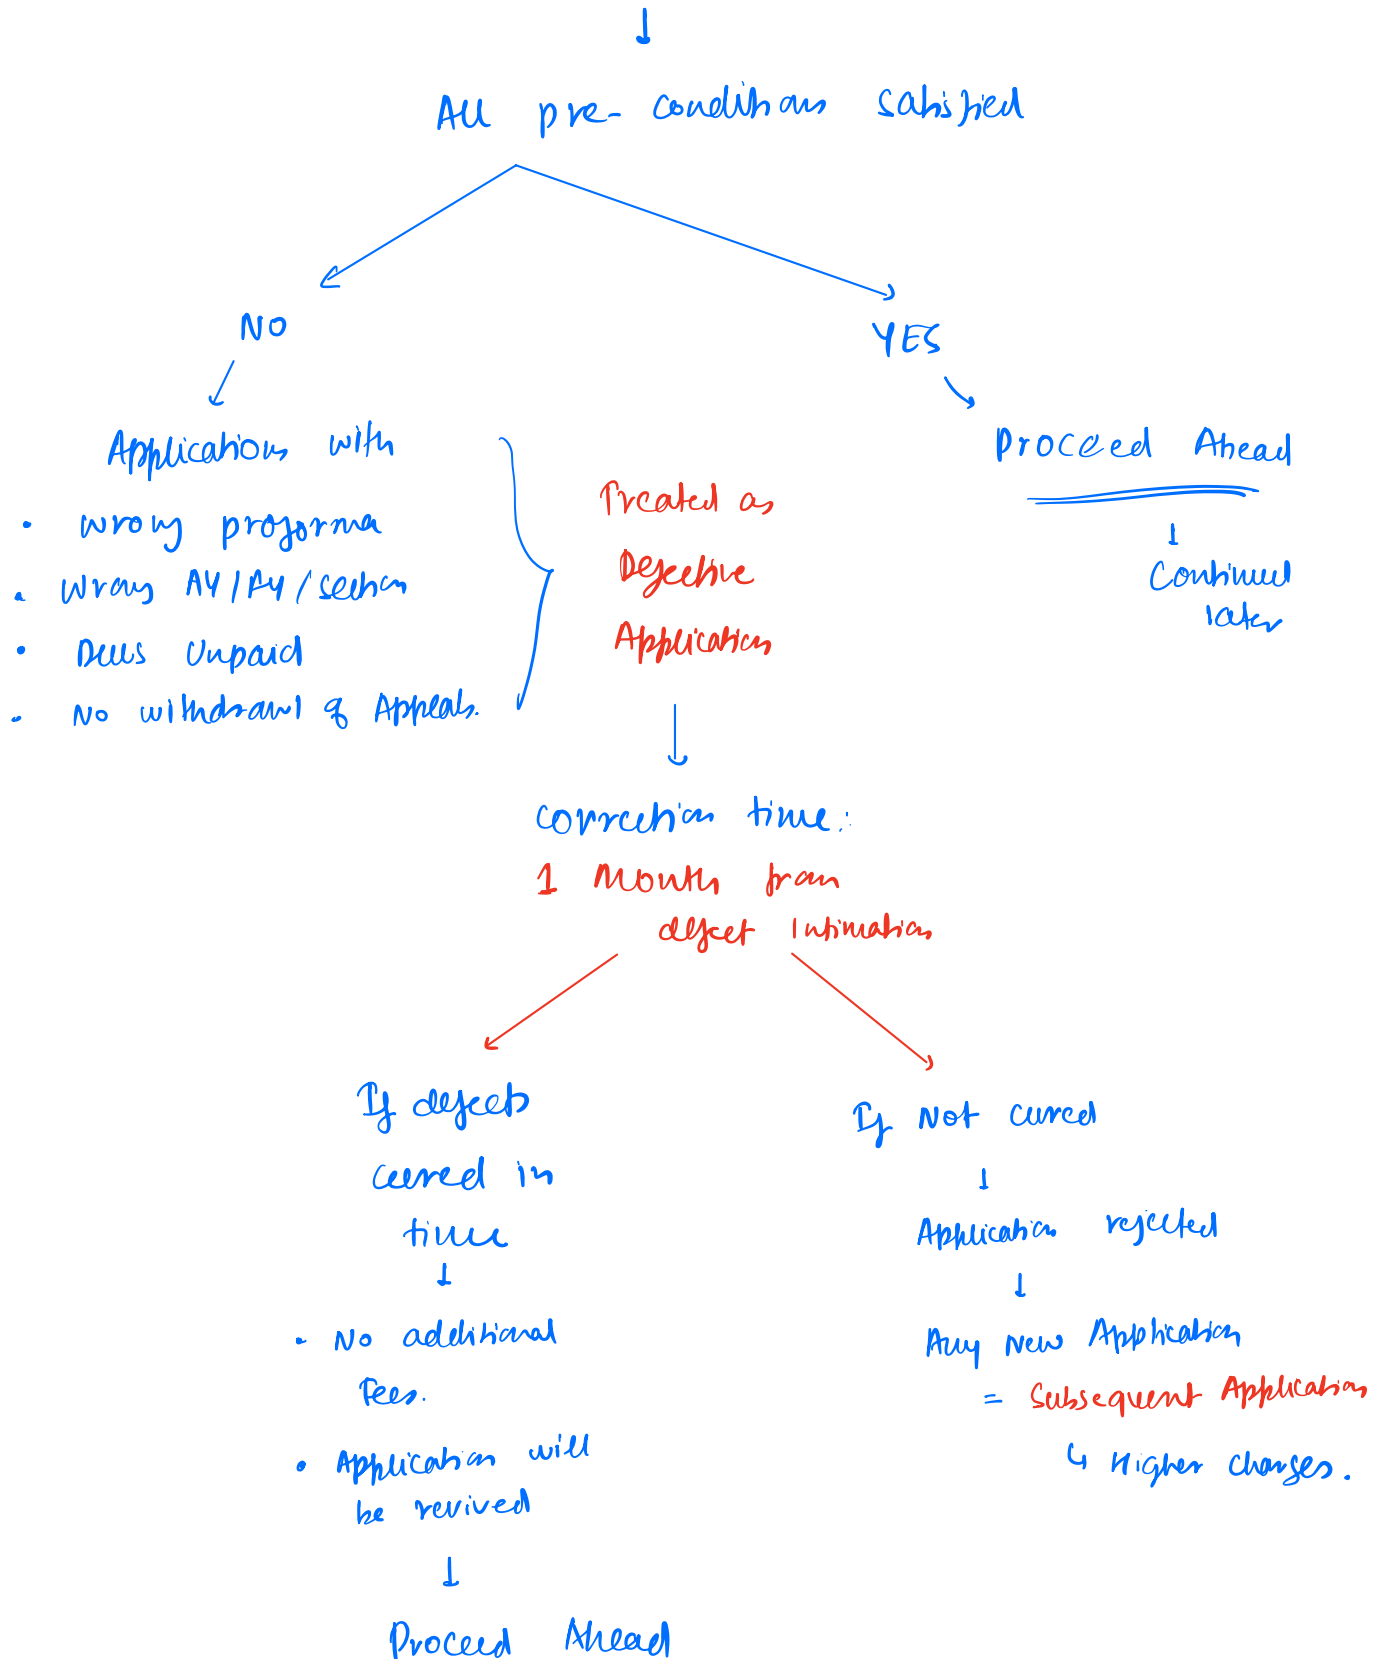 All pre-conditions satisfied
NO
YES
Applications with
• Wrong proforma
• Wrong AY/FY/section
• Dues Unpaid
• No withdrawl of Appeals.
Treated as
Defective
Application
Proceed Ahead
Continued
later
Correction time:
1 Month from
defect Intimation
If defects
cured in
time
• No additional
Fees.
• Application will
be revived
Proceed Ahead
If Not cured
Application rejected
Any New Application
= Subsequent Application
↳ Higher charges.